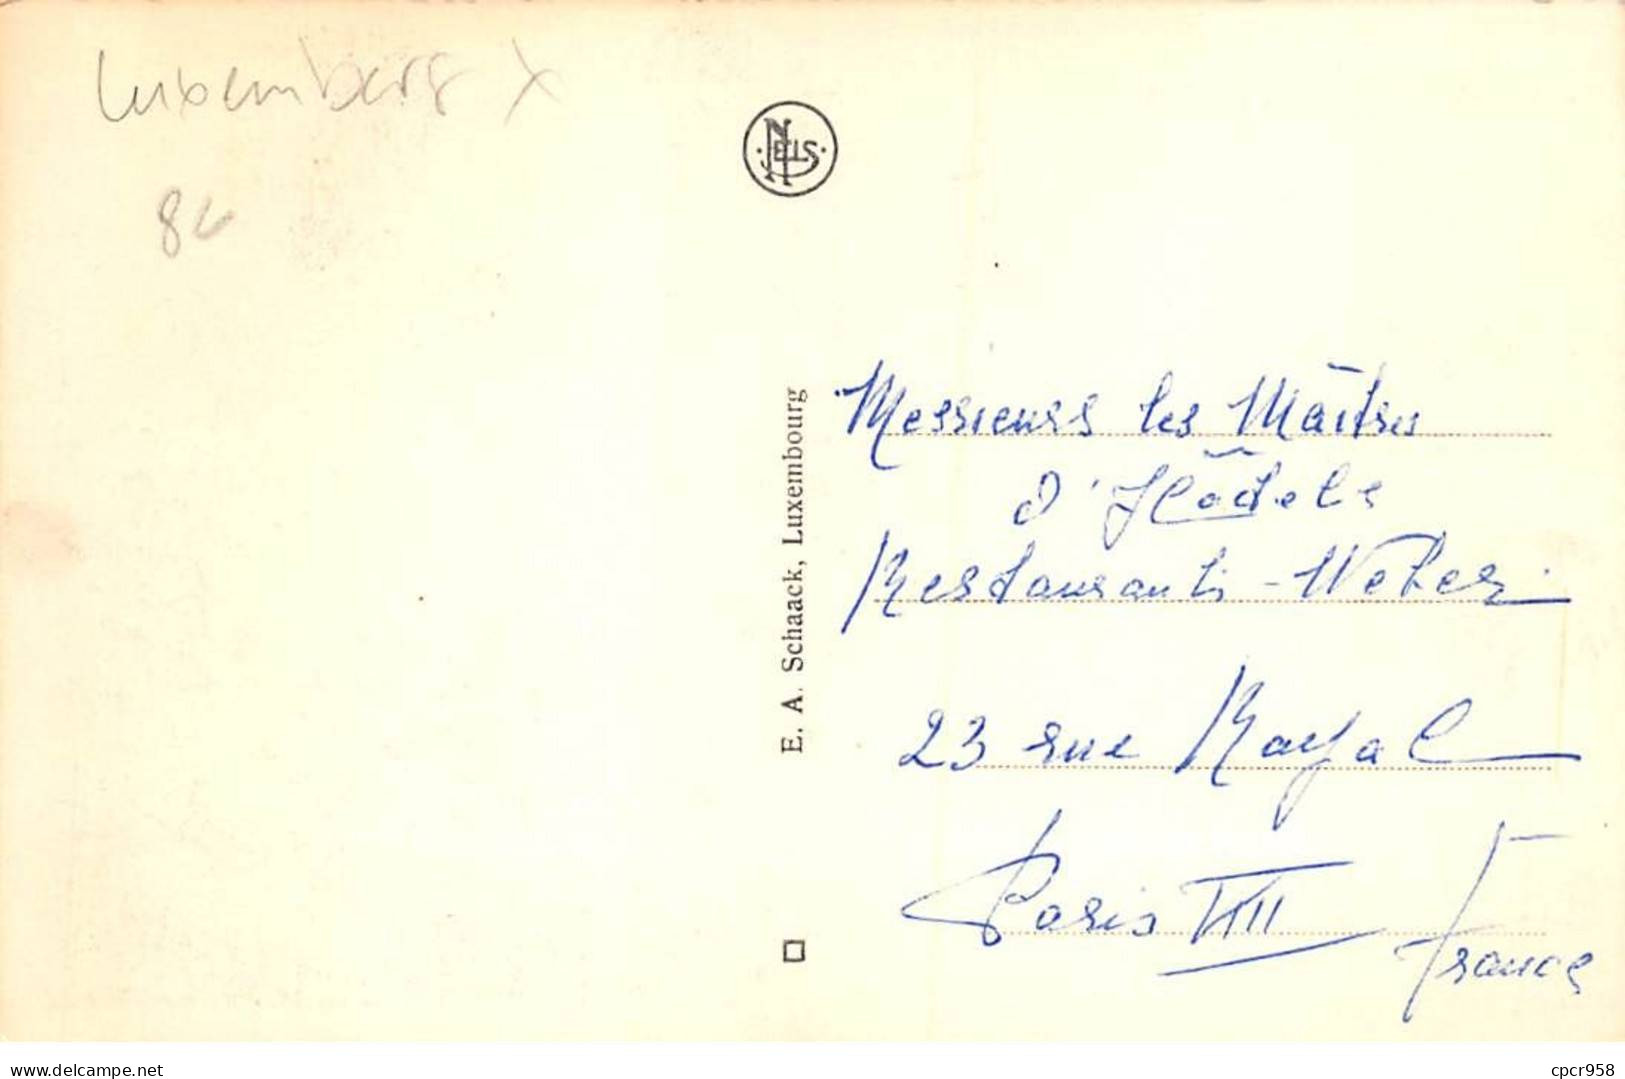 Luxemberg X
8
NELS
E. A. Schaack, Luxembourg
Messieurs les Maîtres
d'Hôtels
Restaurants - Weber
23 rue Royal
Paris VIII
France
delcampe.net
cpcr958